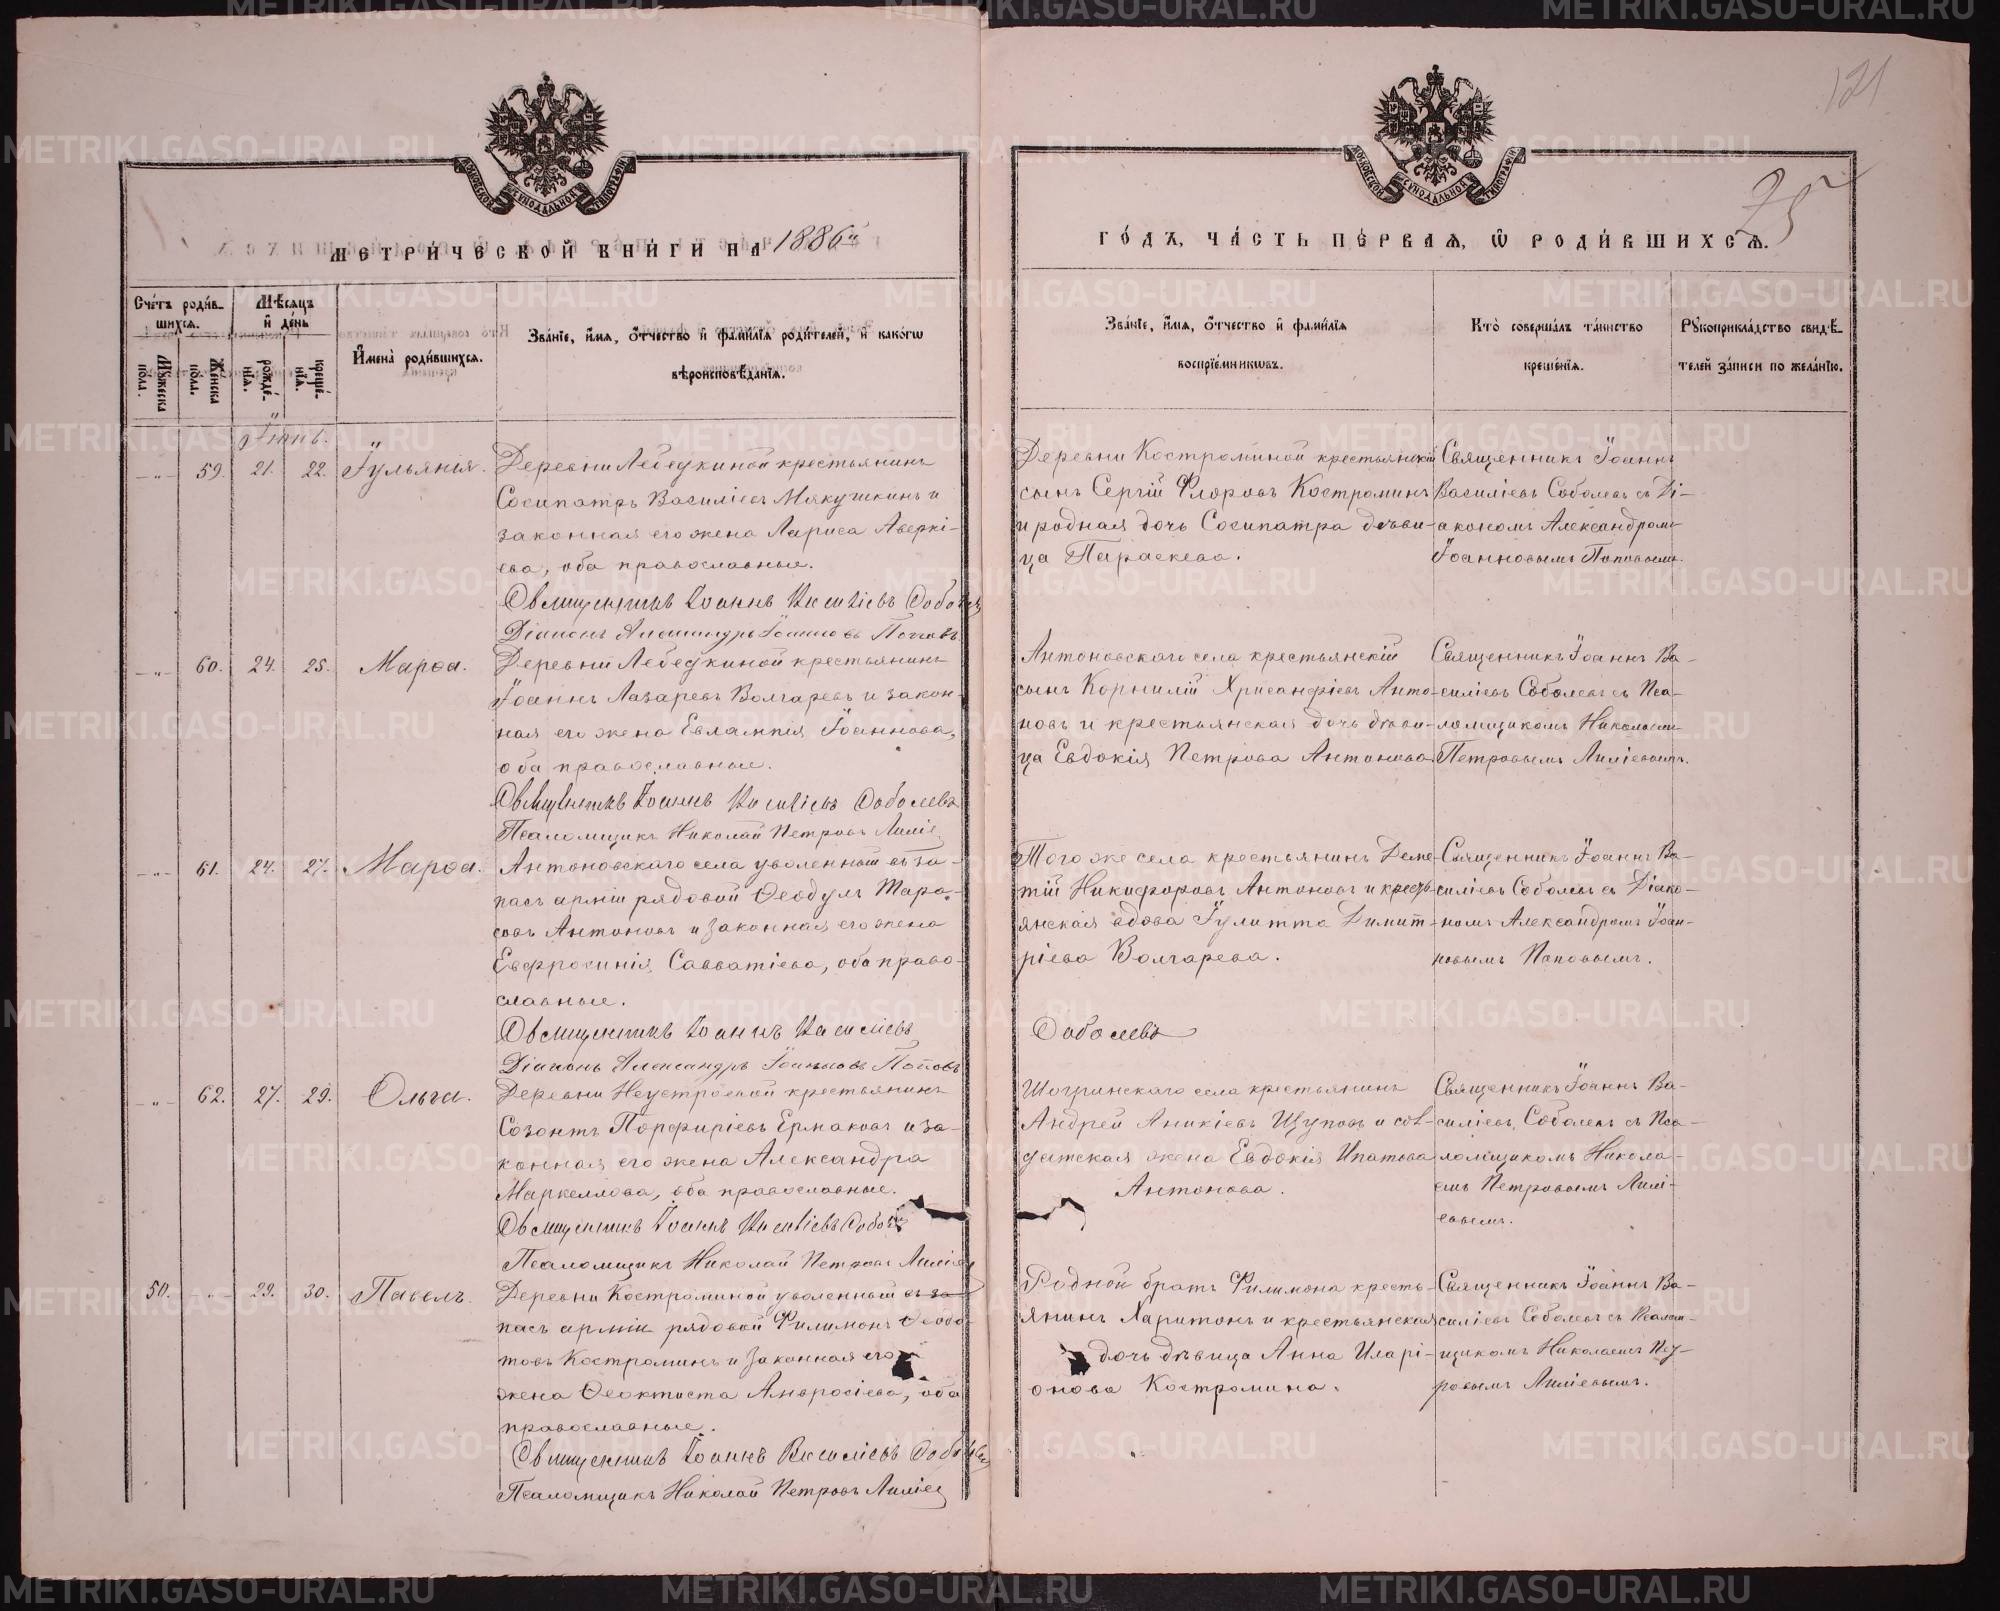 121
75
МОСКОВСКОЙ СУНОДАЛЬНОЙ ТИПОГРАФІИ
МОСКОВСКОЙ СУНОДАЛЬНОЙ ТИПОГРАФІИ
МЕТРИ́ЧЕСКОЙ КНИ́ГИ НА 1886й
ГО́ДЪ, ЧА́СТЬ ПЕ́РВАЯ, Ѡ РОДИ́ВШИХСЯ.
Сче́тъ роди́в-
шихся.
Мѣ́сяцъ
и҆ де́нь
Му́жеска
по́ла.
Же́нска
по́ла.
рожде́-
нїѧ.
креще́-
нїѧ.
И҆мена̀ роди́вшихся.
Зва́нїе, и҆́мѧ, ѻ҆́тчество и҆ фами́лїѧ роди́телей, и҆ како́гѡ
вѣроисповѣ́данїѧ.
Зва́нїе, и҆́мѧ, ѻ҆́тчество и҆ фами́лїѧ
воспрїе́мникѡвъ.
Кто̀ соверша́лъ та́инство
креще́нїѧ.
Рукоприкла́дство свидѣ́-
телей за́писи по жела́нїю.
Іюнь.
-"- 59. 21. 22. Іульянія.
Деревни Лебедкиной крестьянинъ
Сосипатръ Василіевъ Мякушкинъ и
законная его жена Лариса Аверкі-
ева, оба православные.
Священникъ Іоаннъ Василіевъ Соболевъ
Діаконъ Александръ Іоанновъ Поповъ
Деревни Костроминой крестьянскій
сынъ Сергій Флоровъ Костроминъ
и родная дочь Сосипатра дѣви-
ца Параскева.
Священникъ Іоаннъ
Василіевъ Соболевъ съ Ді-
акономъ Александромъ
Іоанновымъ Поповымъ.
-"- 60. 24. 25. Марѳа.
Деревни Лебедкиной крестьянинъ
Іоаннъ Лазаревъ Волгаревъ и закон-
ная его жена Евлампія Іоаннова,
оба православные.
Священникъ Іоаннъ Василіевъ Соболевъ
Псаломщикъ Николай Петровъ
Антоновскаго села крестьянскій
сынъ Корнилій Хрисанфіевъ Анто-
новъ и крестьянская дочь дѣви-
ца Евдокія Петрова Антонова
Священникъ Іоаннъ Ва-
силіевъ Соболевъ съ Пса-
ломщикомъ Николаемъ
Петровымъ Лиліевымъ.
-"- 61. 24. 27. Марѳа.
Антоновскаго села уволенный въ за-
пасъ арміи рядовой Ѳеодулъ Тара-
совъ Антоновъ и законная его жена
Евфросинія Савватіева, оба право-
славные.
Священникъ Іоаннъ Василіевъ
Діаконъ Александръ Іоанновъ Поповъ
Того же села крестьянинъ Деме-
тій Никифоровъ Антоновъ и кресть-
янская вдова Іулитта Димит-
ріева Волгарева.
Соболевъ
Священникъ Іоаннъ Ва-
силіевъ Соболевъ съ Діако-
номъ Александромъ Іоан-
новымъ Поповымъ.
-"- 62. 27. 29. Ольга.
Деревни Неустроевой крестьянинъ
Созонтъ Порфиріевъ Ермаковъ и за-
конная его жена Александра
Маркеллова, оба православные.
Священникъ Іоаннъ Василіевъ
Псаломщикъ Николай Петровъ
Шогринскаго села крестьянинъ
Андрей Аникіевъ Щуповъ и сол-
датская жена Евдокія Ипатова
Антонова.
Священникъ Іоаннъ Ва-
силіевъ Соболевъ съ Пса-
ломщикомъ Никола-
емъ Петровымъ Лилі-
евымъ.
50. -"- 29. 30. Павелъ.
Деревни Костроминой уволенный въ за-
пасъ арміи рядовой Филимонъ Ѳеодо-
товъ Костроминъ и законная его
жена Ѳеоктиста Амвросіева, оба
православные.
Священникъ Іоаннъ Василіевъ Соболевъ
Псаломщикъ Николай Петровъ
Родной братъ Филимона кресть-
янинъ Харитонъ и крестьянская
дочь дѣвица Анна Иларі-
онова Костромина.
Священникъ Іоаннъ Ва-
силіевъ Соболевъ съ Псалом-
щикомъ Николаемъ Пет-
ровымъ Лиліевымъ.
METRIKI.GASO-URAL.RU